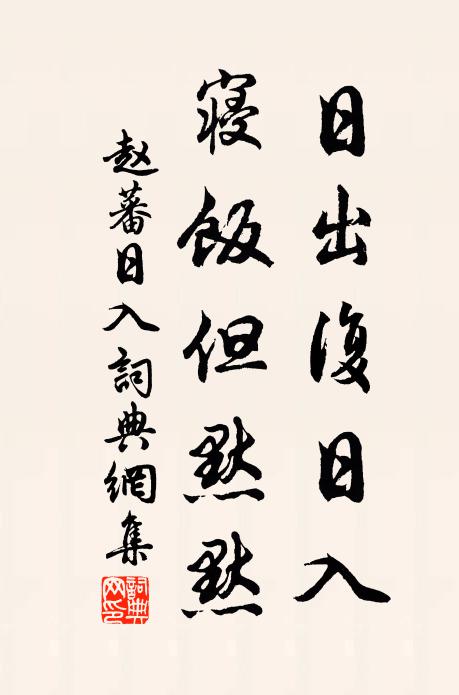 日出復日入
寢飯但默默
赵蕃日入詞典網集
詞典网印